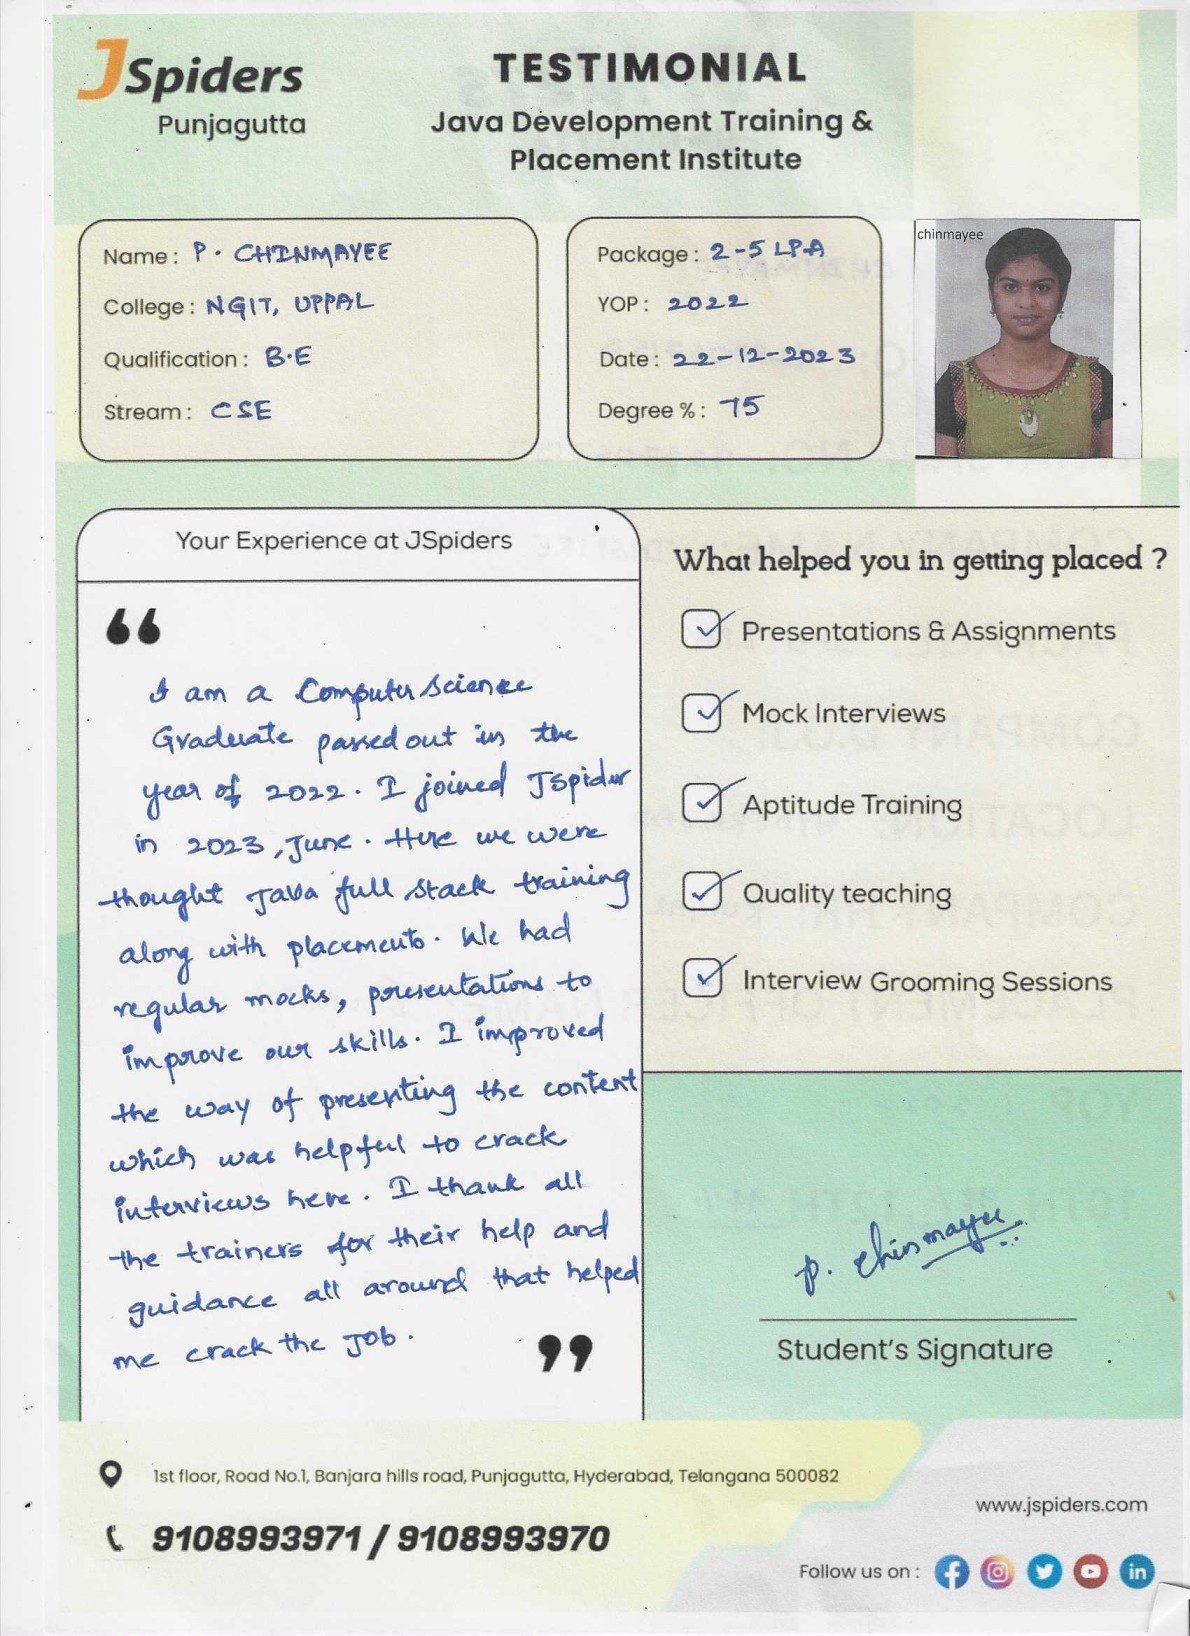 JSpiders
Punjagutta
TESTIMONIAL
Java Development Training &
Placement Institute
Name : P. CHINMAYEE
College : NGIT, UPPAL
Qualification : B.E
Stream : CSE
Package : 2-5 LPA
YOP : 2022
Date : 22-12-2023
Degree % : 75
chinmayee
Your Experience at JSpiders
“
I am a Computer Science
Graduate passed out in the
year of 2022. I joined JSpider
in 2023, June. Here we were
thought Java full stack training
along with placements. We had
regular mocks, presentations to
improve our skills. I improved
the way of presenting the content
which was helpful to crack
interviews here. I thank all
the trainers for their help and
guidance all around that helped
me crack the Job.
”
What helped you in getting placed ?
Presentations & Assignments
Mock Interviews
Aptitude Training
Quality teaching
Interview Grooming Sessions
P. Chinmayee
Student's Signature
1st floor, Road No.1, Banjara hills road, Punjagutta, Hyderabad, Telangana 500082
9108993971 / 9108993970
www.jspiders.com
Follow us on :